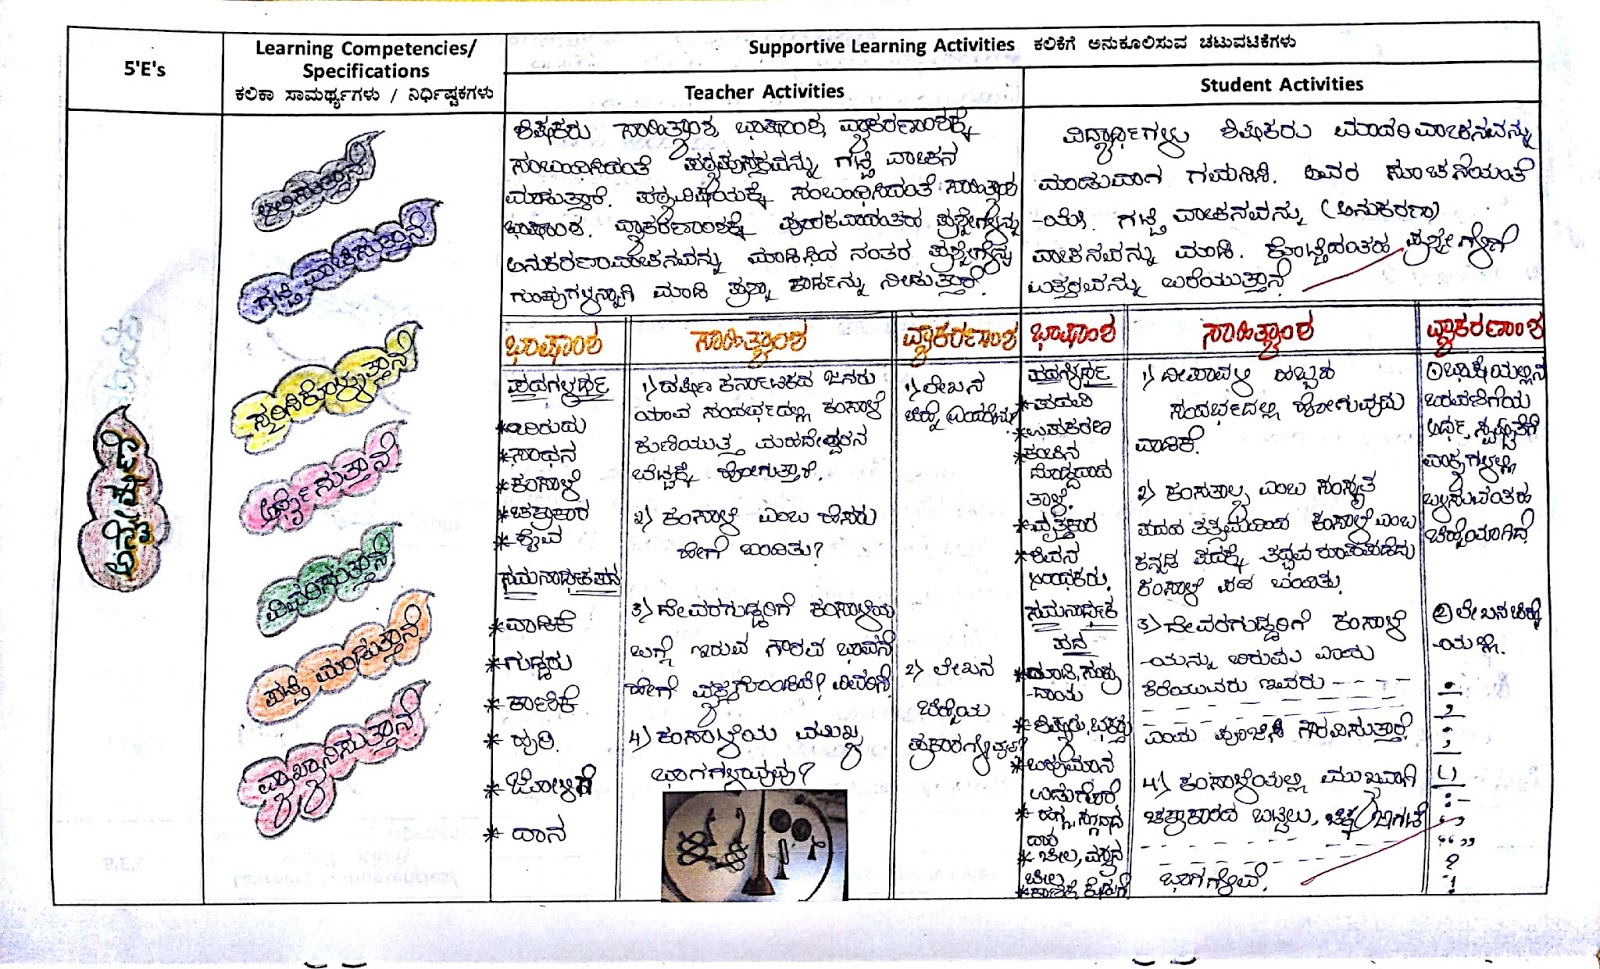 5'E's
Learning Competencies/
Specifications
ಕಲಿಕಾ ಸಾಮರ್ಥ್ಯಗಳು / ನಿರ್ಧಿಷ್ಟಕಗಳು
Supportive Learning Activities ಕಲಿಕೆಗೆ ಅನುಕೂಲಿಸುವ ಚಟುವಟಿಕೆಗಳು
Teacher Activities
Student Activities
ಆಲಿಸುತ್ತಾನೆ
ಗಟ್ಟಿ ವಾಚಿಸುತ್ತಾನೆ
ಸ್ಮರಿಸಿಕೊಳ್ಳುತ್ತಾನೆ
ಅರ್ಥೈಸುತ್ತಾನೆ
ವಿವರಿಸುತ್ತಾನೆ
ಪಟ್ಟಿ ಮಾಡುತ್ತಾನೆ
ವ್ಯಾಖ್ಯಾನಿಸುತ್ತಾನೆ
ಶಿಕ್ಷಕರು ಸಾಹಿತ್ಯಾಂಶ, ಭಾಷಾಂಶ, ವ್ಯಾಕರಣಾಂಶಕ್ಕೆ
ಸಂಬಂಧಿಸಿದಂತೆ ಪಠ್ಯಪುಸ್ತಕವನ್ನು ಗಟ್ಟಿ ವಾಚನ
ಮಾಡುತ್ತಾರೆ. ಪಠ್ಯವಿಷಯಕ್ಕೆ ಸಂಬಂಧಿಸಿದಂತೆ ಸಾಹಿತ್ಯಾಂಶ
ಭಾಷಾಂಶ. ವ್ಯಾಕರಣಾಂಶಕ್ಕೆ ಪೂರಕವಾದಂತಹ ಪ್ರಶ್ನೆಗಳನ್ನು
ಅನುಕರಣಾವಾಚನವನ್ನು ಮಾಡಿಸಿದ ನಂತರ ಪ್ರಶ್ನೆಗಳನ್ನು
ಗುಂಪುಗಳನ್ನಾಗಿ ಮಾಡಿ ಪ್ರಶ್ನಾ ಕಾರ್ಡನ್ನು ನೀಡುತ್ತಾರೆ.
ವಿದ್ಯಾರ್ಥಿಗಳು ಶಿಕ್ಷಕರು ಮಾದರಿ ವಾಚನವನ್ನು
ಮಾಡುವಾಗ ಗಮನಿಸಿ. ಅವರ ಸೂಚನೆಯಂತೆ
-ಯೇ. ಗಟ್ಟಿ ವಾಚನವನ್ನು (ಅನುಕರಣಾ)
ವಾಚನವನ್ನು ಮಾಡಿ. ಕೊಟ್ಟಂತಹ ಪ್ರಶ್ನೆಗಳಿಗೆ
ಉತ್ತರವನ್ನು ಬರೆಯುತ್ತಾನೆ
ಭಾಷಾಂಶ
ಸಾಹಿತ್ಯಾಂಶ
ವ್ಯಾಕರಣಾಂಶ
ಭಾಷಾಂಶ
ಸಾಹಿತ್ಯಾಂಶ
ವ್ಯಾಕರಣಾಂಶ
ಪದಗಳರ್ಥ
*ಬಿರುದು
*ಸಾಧನ
*ಕಂಸಾಳೆ
*ಚಕ್ರಾಕಾರ
*ಶೈವ
ಸಮನಾರ್ಥಕ ಪದ
*ವಾಡಿಕೆ
*ಗುಡ್ಡರು
*ಕಾಣಿಕೆ
*
*ಜೋಳಿಗೆ
*ದಾನ
1) ದಕ್ಷಿಣ ಕರ್ನಾಟಕದ ಜನರು
ಯಾವ ಸಂದರ್ಭದಲ್ಲಿ ಕಂಸಾಳೆ
ಕುಣಿಯುತ್ತ ಮಹದೇಶ್ವರನ
ಬೆಟ್ಟಕ್ಕೆ ಹೋಗುತ್ತಾರೆ.
2) ಕಂಸಾಳೆ ಎಂಬ ಹೆಸರು
ಹೇಗೆ ಬಂದಿತು?
3) ದೇವರಗುಡ್ಡರಿಗೆ ಕಂಸಾಳೆಯ
ಬಗ್ಗೆ ಇರುವ ಗೌರವ ಭಾವನೆ
ಹೇಗೆ ವ್ಯಕ್ತಗೊಂಡಿದೆ? ವಿವರಿಸಿ
4) ಕಂಸಾಳೆಯ ಮುಖ್ಯ
ಭಾಗಗಳಾವುವು?
1) ಲೇಖನ
ಚಿಹ್ನೆ ಎಂದರೇನು
2) ಲೇಖನ
ಚಿಹ್ನೆಯ
ಪ್ರಕಾರಗಳೆಷ್ಟು?
ಪದಗಳರ್ಥ
*ಪದವಿ
*ಉಪಕರಣ
*ಕಂಚಿನ
ದೊಡ್ಡದಾದ
ತಾಳ.
*ವೃತ್ತಾಕಾರ
*ಶಿವನ
ಆರಾಧಕರು.
ಸಮನಾರ್ಥಕ
ಪದ
*ರೂಢಿ,
*ಶಿಷ್ಯರು, ಭಕ್ತರು
*ಬಹುಮಾನ
ಉಡುಗೊರೆ
*ಹಗ್ಗ,
ದಾರ
*ಚೀಲ,
ಚೀಲ
1) ದೀಪಾವಳಿ ಹಬ್ಬದ
ಸಂದರ್ಭದಲ್ಲಿ ಹೋಗುವುದು
ವಾಡಿಕೆ.
2) ಕಂಸತಾಳ ಎಂಬ ಸಂಸ್ಕೃತ
ಪದದ ತತ್ಸಮದಿಂದ ಕಂಸಾಳೆ ಎಂಬ
ಕನ್ನಡ ಪದಕ್ಕೆ ತದ್ಭವ ರೂಪ ಪಡೆದು
ಕಂಸಾಳೆ ಪದ ಬಂದಿತು.
3) ದೇವರಗುಡ್ಡರಿಗೆ ಕಂಸಾಳೆ
-ಯನ್ನು ಬಿರುದು ಎಂದು
ಕರೆಯುವರು ಇವರು - - - -
ಎಂದು ಪೂಜಿಸಿ ಗೌರವಿಸುತ್ತಾರೆ.
4) ಕಂಸಾಳೆಯಲ್ಲಿ ಮುಖ್ಯವಾಗಿ
ಚಕ್ರಾಕಾರದ ಬಟ್ಟಲು,
ಭಾಗಗಳಿವೆ.
① ಭಾಷೆಯಲ್ಲಿನ
ಬರವಣಿಗೆಯ
ಅರ್ಥ, ಸ್ಪಷ್ಟತೆಗೆ
ವಾಕ್ಯಗಳಲ್ಲಿ
ಬಳಸುವಂತಹ
ಚಿಹ್ನೆಯಾಗಿದೆ
② ಲೇಖನ ಚಿಹ್ನೆ
-ಯಲ್ಲಿ.
.
,
;
( )
:-
‘ ’
“ ”
?
!